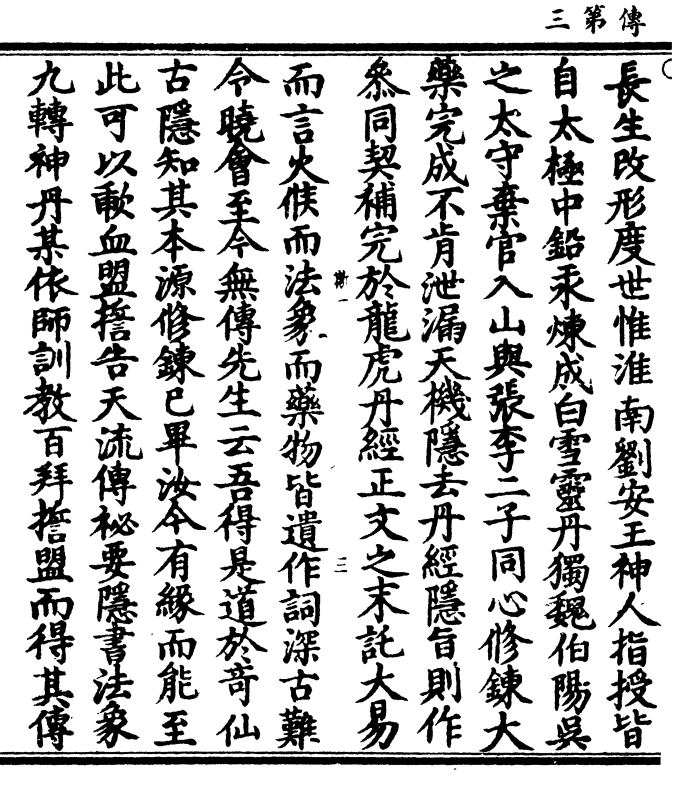 傳第三
長生改形度世惟淮南劉安王神人指授皆
自太極中鉛汞煉成白雪靈丹獨魏伯陽吳
之太守棄官入山與張李二子同心修鍊大
藥完成不肯泄漏天機隱去丹經隱旨則作
叅同契補完於龍虎丹經正文之末託大易
三
而言火候而法象而藥物皆遺作詞深古難
令曉會至今無傳先生云吾得是道於奇仙
古隱知其本源修鍊已畢汝今有緣而能至
此可以歃血盟誓告天流傳祕要隱書法象
九轉神丹某依師訓教百拜誓盟而得其傳